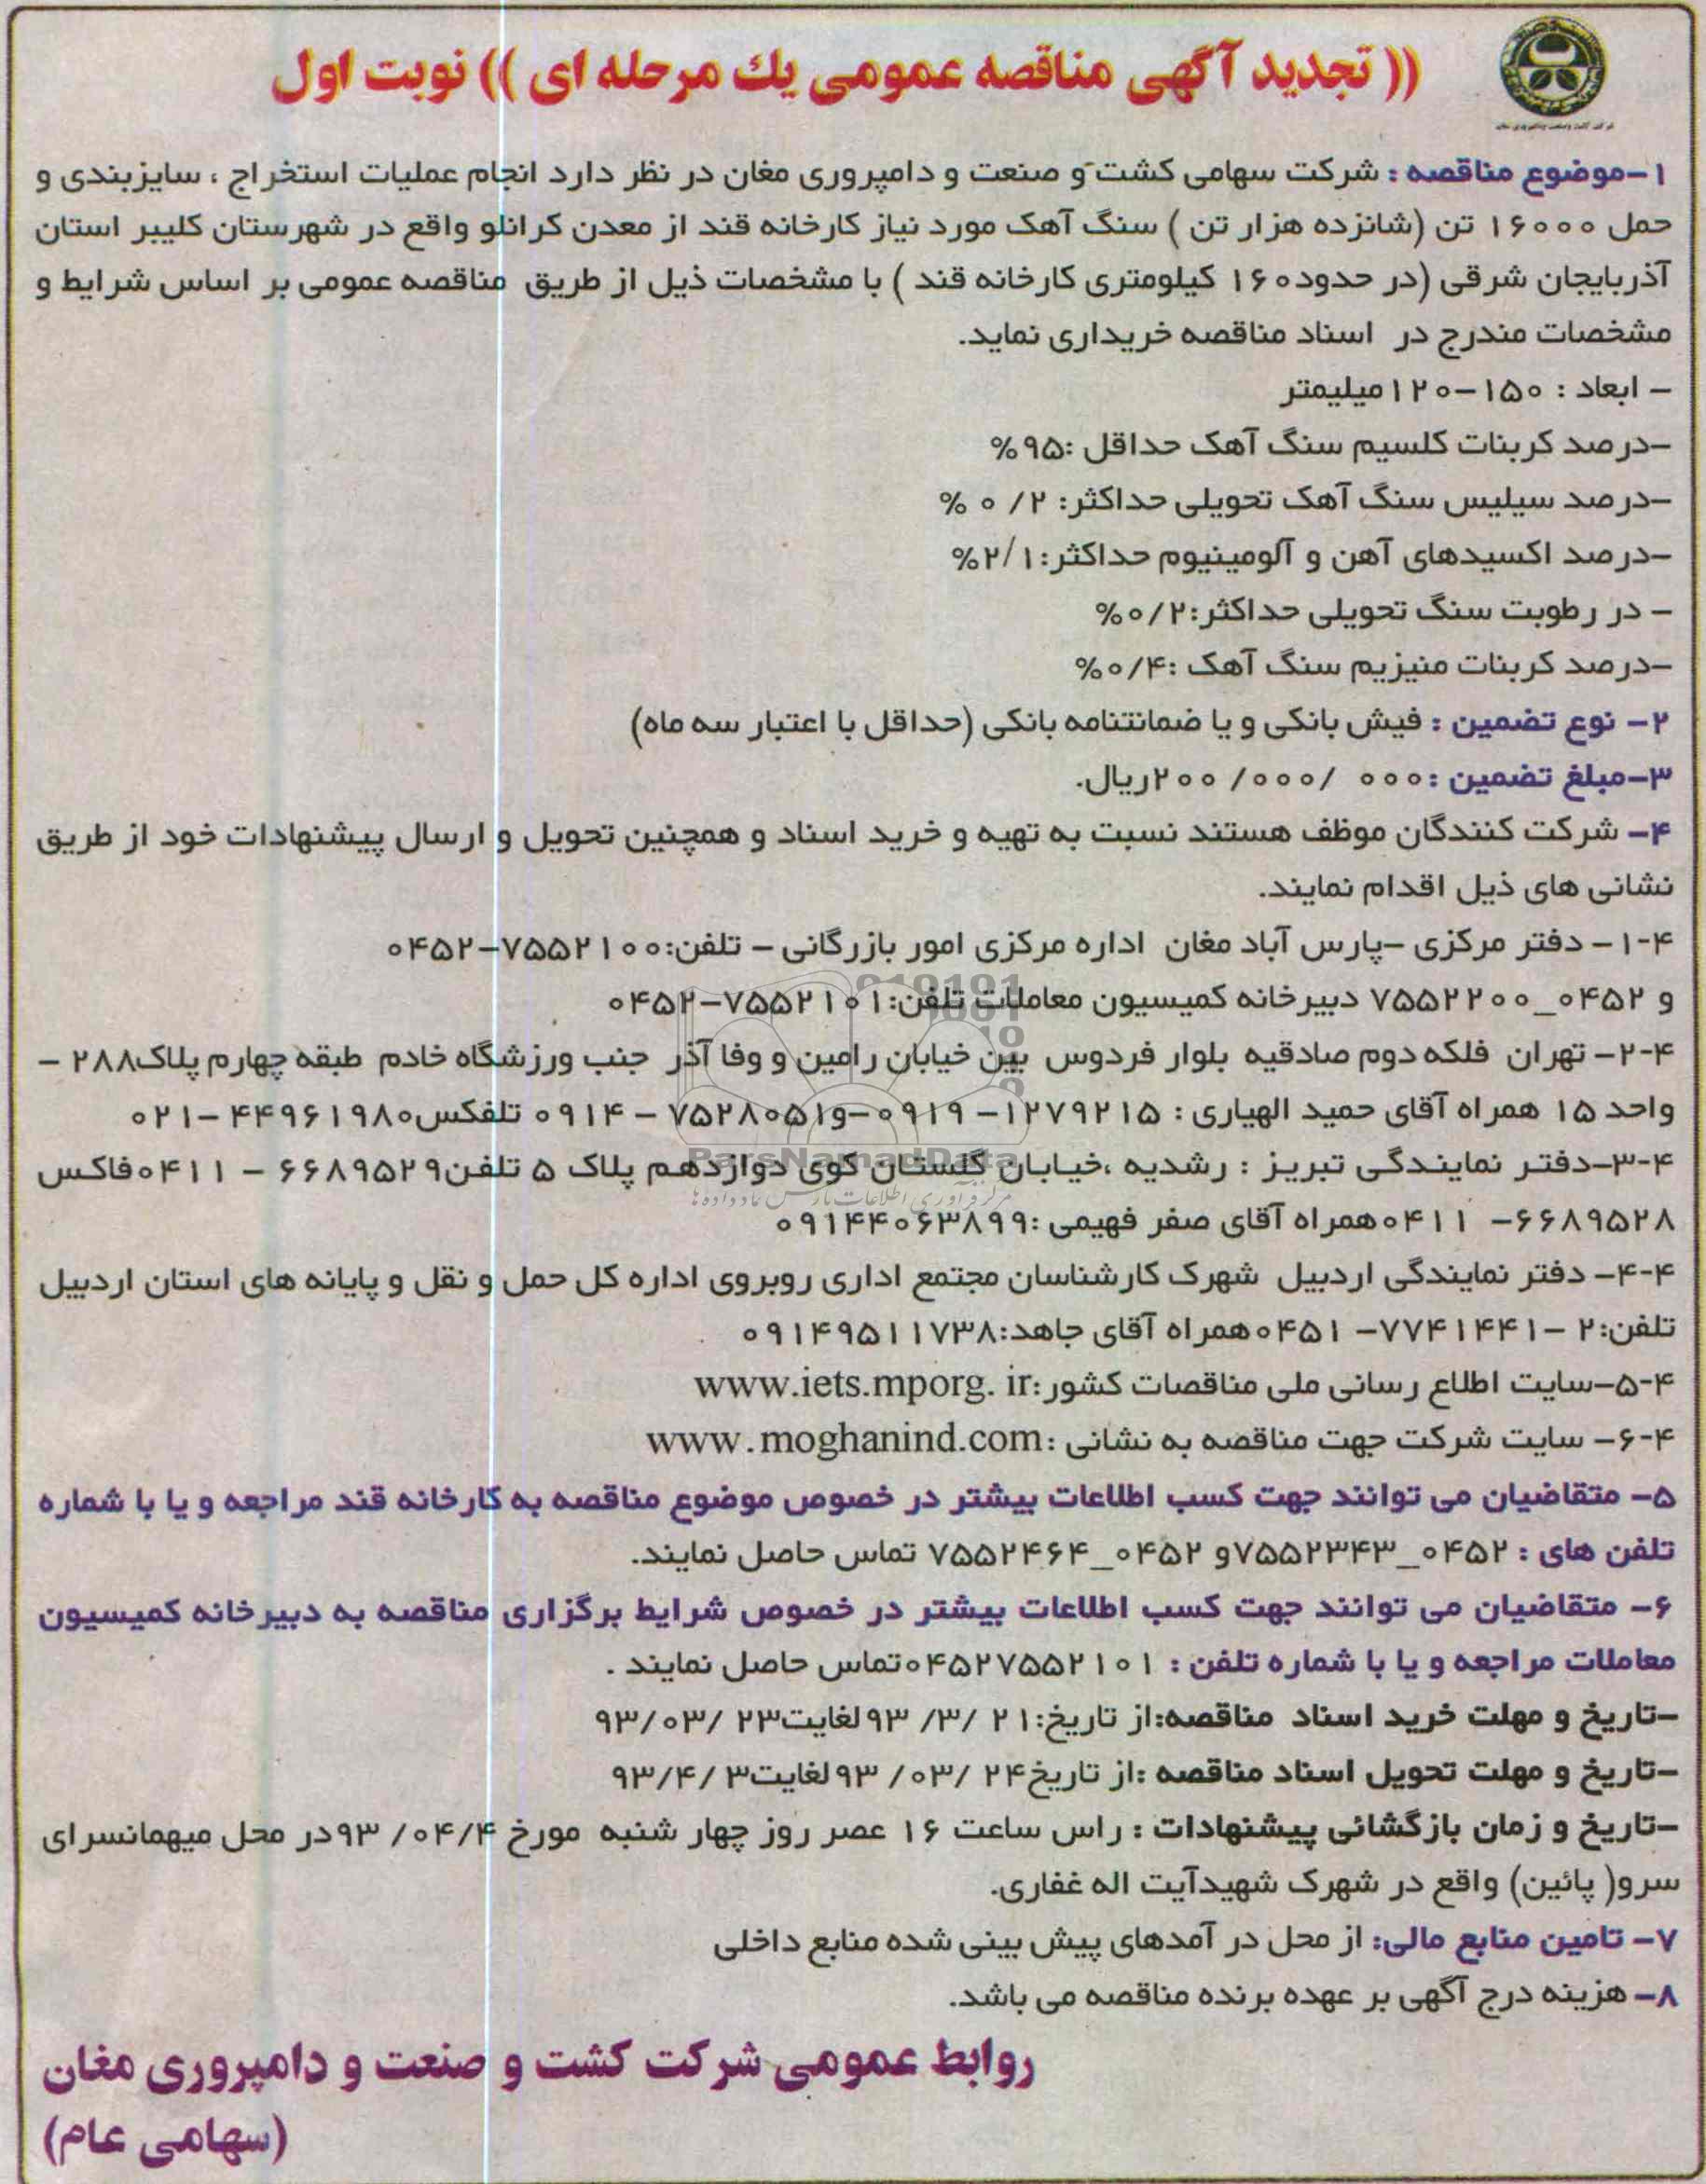 (( تجدید آگهی مناقصه عمومی یك مرحله ای )) نوبت اول
۱-موضوع مناقصه : شرکت سهامی کشت و صنعت و دامپروری مغان در نظر دارد انجام عملیات استخراج ، سایزبندی و
حمل ۱۶۰۰۰ تن (شانزده هزار تن ) سنگ آهک مورد نیاز کارخانه قند از معدن کرانلو واقع در شهرستان کلیبر استان
آذربایجان شرقی (در حدود۱۶۰ کیلومتری کارخانه قند ) با مشخصات ذیل از طریق مناقصه عمومی بر اساس شرایط و
مشخصات مندرج در اسناد مناقصه خریداری نماید.
- ابعاد : ۱۵۰-۱۲۰میلیمتر
-درصد کربنات کلسیم سنگ آهک حداقل :۹۵%
-درصد سیلیس سنگ آهک تحویلی حداکثر: ۲/ ۰ %
-درصد اکسیدهای آهن و آلومینیوم حداکثر:۲/۱%
- در رطوبت سنگ تحویلی حداکثر:۰/۲%
-درصد کربنات منیزیم سنگ آهک :۰/۴%
۲- نوع تضمین : فیش بانکی و یا ضمانتنامه بانکی (حداقل با اعتبار سه ماه)
۳-مبلغ تضمین :۰۰۰ /۰۰۰/ ۲۰۰ریال.
۴- شرکت کنندگان موظف هستند نسبت به تهیه و خرید اسناد و همچنین تحویل و ارسال پیشنهادات خود از طریق
نشانی های ذیل اقدام نمایند.
۱-۴- دفتر مرکزی -پارس آباد مغان اداره مرکزی امور بازرگانی - تلفن:۷۵۵۲۱۰۰-۰۴۵۲
و ۰۴۵۲_۷۵۵۲۲۰۰ دبیرخانه کمیسیون معاملات تلفن:۷۵۵۲۱۰۱-۰۴۵۲
۲-۴- تهران فلکه دوم صادقیه بلوار فردوس بین خیابان رامین و وفا آذر جنب ورزشگاه خادم طبقه چهارم پلاک۲۸۸ -
واحد ۱۵ همراه آقای حمید الهیاری : ۱۲۷۹۲۱۵- ۰۹۱۹-و۷۵۲۸۰۵۱ - ۰۹۱۴ تلفکس۴۴۹۶۱۹۸۰ -۰۲۱
۳-۴-دفتر نمایندگی تبریز : رشدیه ،خیابان گلستان کوی دوازدهم پلاک ۵ تلفن۶۶۸۹۵۲۹ - ۰۴۱۱فاکس
۶۶۸۹۵۲۸- ۰۴۱۱همراه آقای صفر فهیمی :۰۹۱۴۴۰۶۳۸۹۹
۴-۴- دفتر نمایندگی اردبیل شهرک کارشناسان مجتمع اداری روبروی اداره کل حمل و نقل و پایانه های استان اردبیل
تلفن:۲ -۷۷۴۱۴۴۱- ۰۴۵۱همراه آقای جاهد:۰۹۱۴۹۵۱۱۷۳۸
۵-۴-سایت اطلاع رسانی ملی مناقصات کشور:www.iets.mporg. ir
۶-۴- سایت شرکت جهت مناقصه به نشانی :www.moghanind.com
۵- متقاضیان می توانند جهت کسب اطلاعات بیشتر در خصوص موضوع مناقصه به کارخانه قند مراجعه و یا با شماره
تلفن های : ۰۴۵۲_۷۵۵۲۳۴۳و ۰۴۵۲_۷۵۵۲۴۶۴ تماس حاصل نمایند.
۶- متقاضیان می توانند جهت کسب اطلاعات بیشتر در خصوص شرایط برگزاری مناقصه به دبیرخانه کمیسیون
معاملات مراجعه و یا با شماره تلفن : ۰۴۵۲۷۵۵۲۱۰۱تماس حاصل نمایند .
-تاریخ و مهلت خرید اسناد مناقصه:از تاریخ:۲۱ /۳/ ۹۳لغایت۲۳ /۹۳/۰۳
-تاریخ و مهلت تحویل اسناد مناقصه :از تاریخ۲۴ /۰۳/ ۹۳لغایت۹۳/۴/۳
-تاریخ و زمان بازگشائی پیشنهادات : راس ساعت ۱۶ عصر روز چهار شنبه مورخ ۰۴/۴/ ۹۳در محل میهمانسرای
سرو( پائین) واقع در شهرک شهیدآیت اله غفاری.
۷- تامین منابع مالی: از محل در آمدهای پیش بینی شده منابع داخلی
۸- هزینه درج آگهی بر عهده برنده مناقصه می باشد.
روابط عمومی شرکت کشت و صنعت و دامپروری مغان
(سهامی عام)
ParsNamadData
مرکز فرآوری اطلاعات پارس نماد داده ها